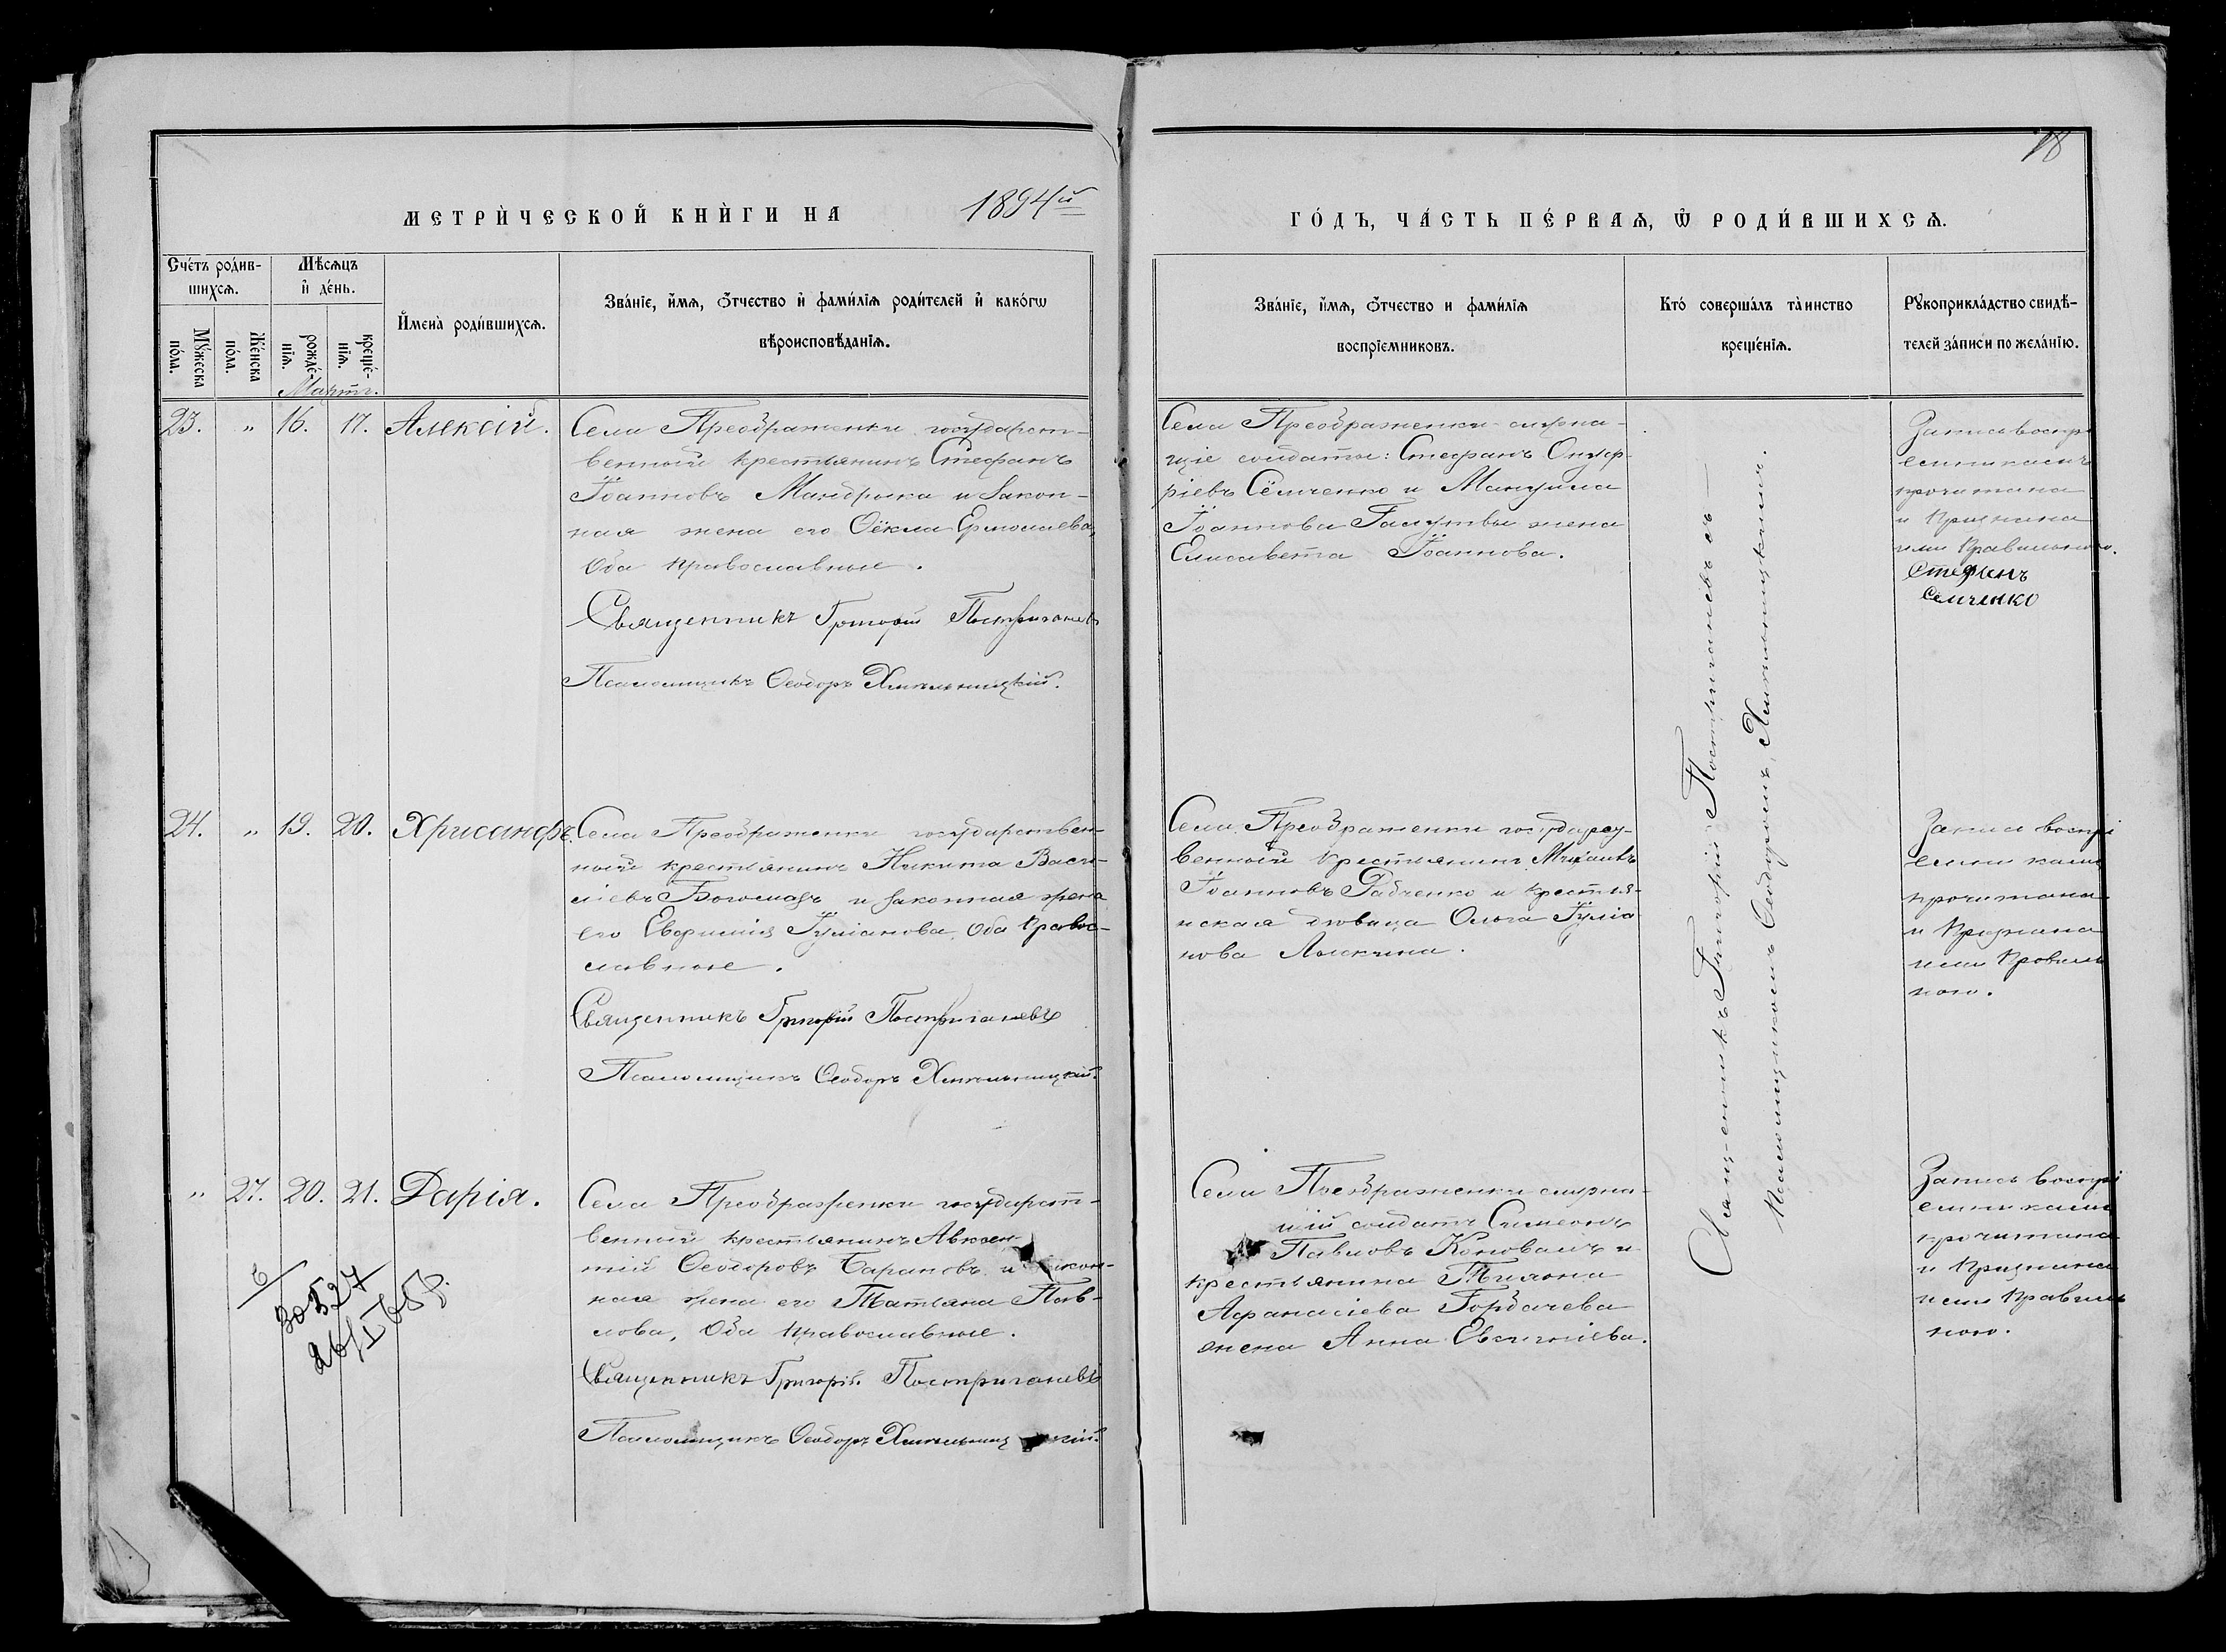 18
МЕТРИ́ЧЕСКОЙ КНИ́ГИ НА 1894й
ГО́ДЪ, ЧА́СТЬ ПЕ́РВАЯ, Ѡ РОДИ́ВШИХСѦ.
Сче́тъ роди́в-
шихсѧ.
Мꙋ́жеска
по́ла.
Же́нска
по́ла.
Мѣ́сѧцъ
и҆ де́нь.
рожде́-
нїѧ.
креще́-
нїѧ.
Мартъ.
И҆мена̀ роди́вшихсѧ.
Зва́нїе, и҆́мѧ, ѻ҆́тчество и҆ фами́лїѧ роди́телей и҆ како́гѡ
вѣроисповѣ́данїѧ.
Зва́нїе, и҆́мѧ, ѻ҆́тчество и фами́лїѧ
воспрїе́мниковъ.
Кто́ соверша́лъ та́инство
креще́нїѧ.
Рꙋкоприкла́дство свидѣ́-
телей за́писи по жела́нїю.
23. " 16. 17. Алексій.
Села Преображенки государст-
венный крестьянинъ Стефанъ
Іоанновъ Мандрыка и закон-
ная жена его Ѳекла Ермолаева,
Оба православные.
Священникъ Григорій Постригачевъ
Псаломщикъ Ѳеодоръ Хмельницкій.
Села Преображенки служа-
щіе солдаты: Стефанъ Онуф-
ріевъ Семченко и Мануила
Іоаннова Галутвы жена
Елисавета Іоаннова.
Запись воспрі
емникамъ
прочитана
и признана
ими правильною.
Стефанъ
Семченко
Священникъ Григорій Постригачевъ съ
псаломщикомъ Ѳеодоромъ Хмельницкимъ.
24. " 19. 20. Хрисанфъ.
Села Преображенки государствен-
ный крестьянинъ Никита Васи-
ліевъ Богомазъ и законная жена
его Евфимія Іуліанова, Оба правос-
лавные.
Священникъ Григорій Постригачевъ
Псаломщикъ Ѳеодоръ Хмельницкій.
Села Преображенки государс-
венный крестьянинъ Михаилъ
Іоанновъ Рабченко и крестья-
нская дѣвица Ольга Іуліа
нова
Запись воспрі
емникамъ
прочитана
и признана
ими правиль
ною.
" 27. 20. 21. Дарія.
Села Преображенки государст-
венный крестьянинъ Авксен
тій Ѳеодоровъ Барановъ и закон-
ная жена его Татіана Пав-
лова, Оба православные.
Священникъ Григорій Постригачевъ
Псаломщикъ Ѳеодоръ Хмельницкій.
Села Преображенки служа-
щій солдатъ Симеонъ
Павловъ Коновалъ и
крестьянина Тихона
Афанасіева Горбачева
жена Анна Евсигніева.
Запись воспрі
емникамъ
прочитана
и признана
ими правиль
ною.